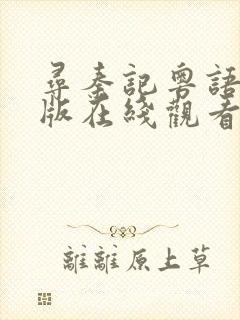 尋秦記粵語
版在綫觀看
離離原上草